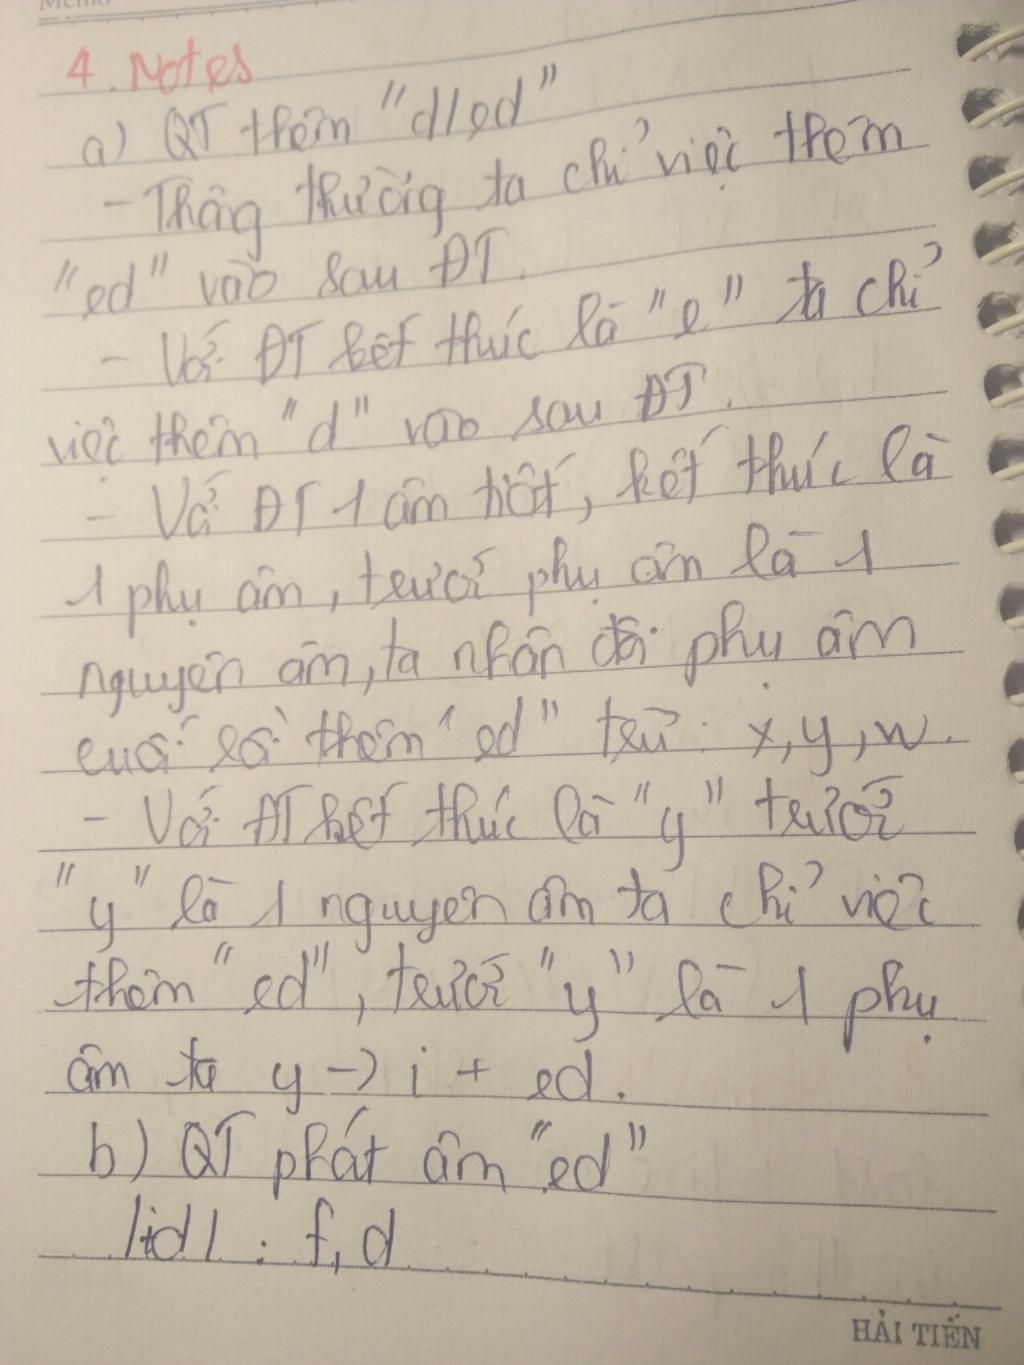 Memo
4. Notes
a) QT thêm "d/ed"
- Thông thường ta chỉ việc thêm
"ed" vào sau ĐT.
- Với ĐT kết thúc là "e" ta chỉ
việc thêm "d" vào sau ĐT.
- Với ĐT 1 âm tiết, kết thúc là
1 phụ âm, trước phụ âm là 1
nguyên âm, ta nhân đôi phụ âm
cuối rồi thêm "ed" trừ: x, y, w.
- Với ĐT kết thúc là "y" trước
"y" là 1 nguyên âm ta chỉ việc
thêm "ed", trước "y" là 1 phụ
âm ta y -> i + ed.
b) QT phát âm "ed"
/id/ : t, d
HẢI TIẾN